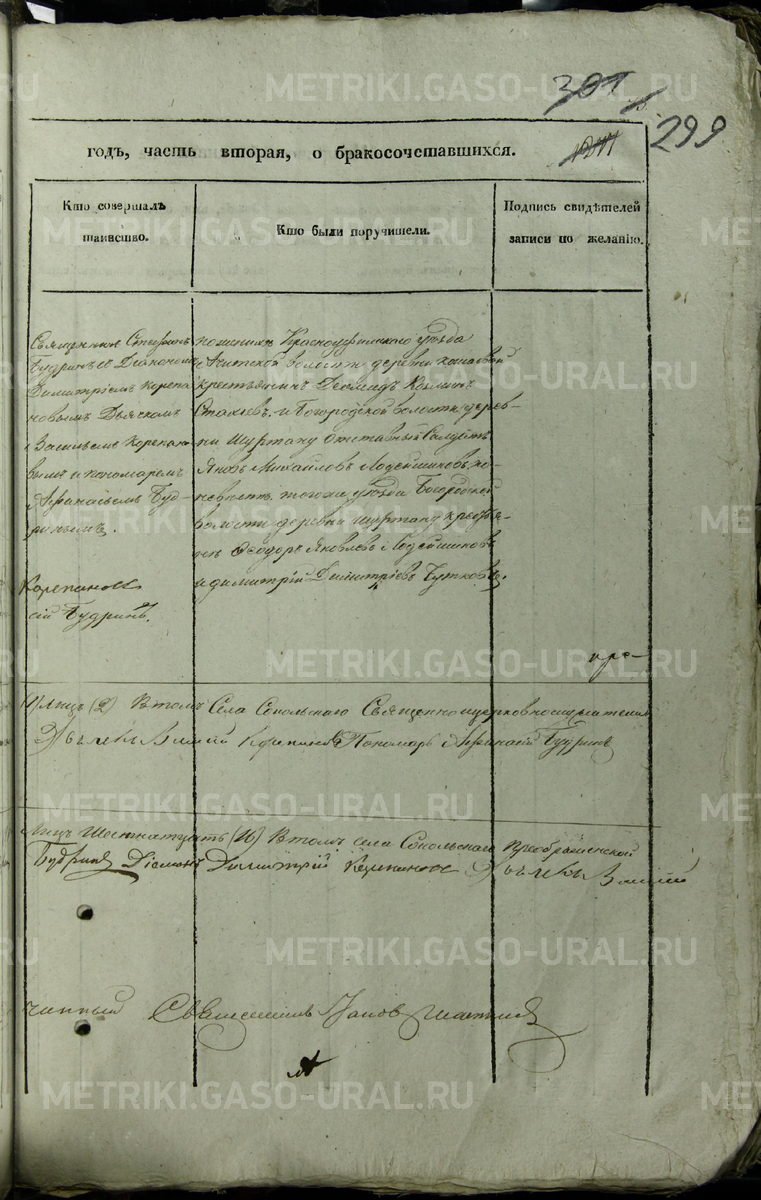 299
годъ, часть вторая, о бракосочетавшихся.
Кто совершалъ таинство.
Кто были поручители.
Подпись свидѣтелей записи по желанію.
Священникъ Стефанъ
Будринъ съ Діакономъ
Димитріемъ Корепа
новымъ Дьячкомъ
Васильемъ Корепано
вымъ и пономаремъ
Афанасьемъ Буд-
ринымъ.
Корепановъ
сій Будринъ.
по женихѣ Красноуфимскаго уѣзда
Ачитской волости деревни
крестьянинъ Козмин
Стахѣевъ. и Богородской волости дерев-
ни Шуртану отставный Солдатъ
Яковъ Михайловъ Лодейщиковъ по
невѣстѣ тогоже уѣзда Богородской
волости деревни Шуртану крестья-
не Ѳеодоръ Яковлевъ Лодейщиковъ
и Димитрій Димитріевъ Бутковъ.
пре-
лицъ (2) Въ томъ Села Сокольскаго Священноцерковнослужители
Василій Корепановъ Пономарь Афанасій Будринъ
Лицъ Шестнатцать (16) Въ томъ села Сокольскаго Преображенской
Будринъ Діаконъ Димитрій Корепановъ Василій
чинный Священникъ Іаковъ
METRIKI.GASO-URAL.RU